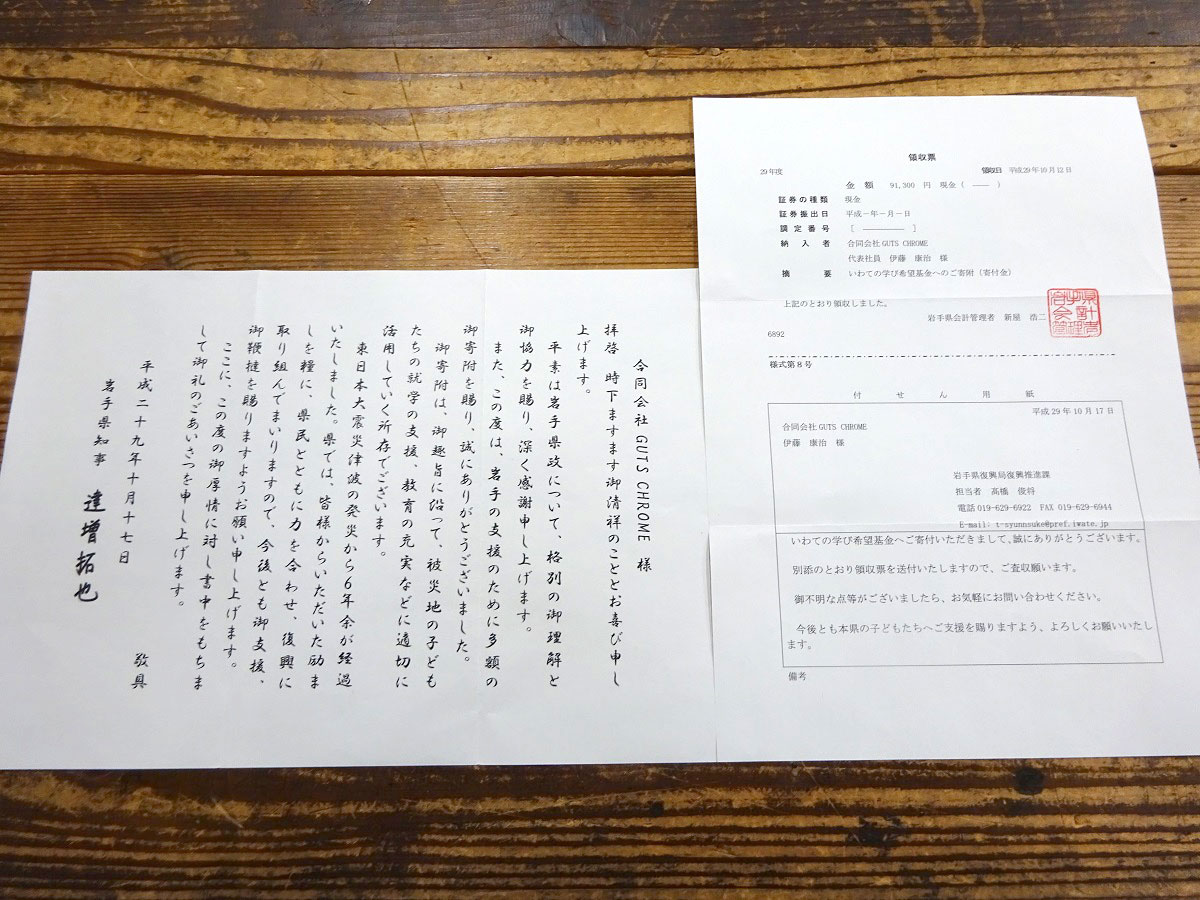 合同会社 GUTS CHROME 様
拝啓 時下ますます御清祥のこととお喜び申し
上げます。
平素は岩手県政について、格別の御理解と
御協力を賜り、深く感謝申し上げます。
また、この度は、岩手の支援のために多額の
御寄附を賜り、誠にありがとうございました。
御寄附は、御趣旨に沿って、被災地の子ども
たちの就学の支援、教育の充実などに適切に
活用していく所存でございます。
東日本大震災津波の発災から6年余が経過
いたしました。県では、皆様からいただいた励ま
しを糧に、県民とともに力を合わせ、復興に
取り組んでまいりますので、今後とも御支援、
御鞭撻を賜りますようお願い申し上げます。
ここに、この度の御厚情に対し書中をもちま
して御礼のごあいさつを申し上げます。
敬具
平成二十九年十月十七日
岩手県知事 達増拓也
領収票
29年度 領収日 平成29年10月12日
金額 91,300 円 現金 ( ―― )
証券の種類 現金
証券振出日 平成－年－月－日
調定番号 [ ―――― ]
納入者 合同会社GUTS CHROME
代表社員 伊藤 康治 様
摘要 いわての学び希望基金へのご寄附（寄付金）
上記のとおり領収しました。
岩手県会計管理者 新屋 浩二
6892
様式第8号
付せん用紙
平成29年10月17日
合同会社GUTS CHROME
伊藤 康治 様
岩手県復興局復興推進課
担当者 高橋 俊将
電話 019-629-6922 FAX 019-629-6944
E-mail: t-syunnsuke@pref.iwate.jp
いわての学び希望基金へご寄付いただきまして、誠にありがとうございます。
別添のとおり領収票を送付いたしますので、ご査収願います。
御不明な点等がございましたら、お気軽にお問い合わせください。
今後とも本県の子どもたちへご支援を賜りますよう、よろしくお願いいたし
ます。
備考